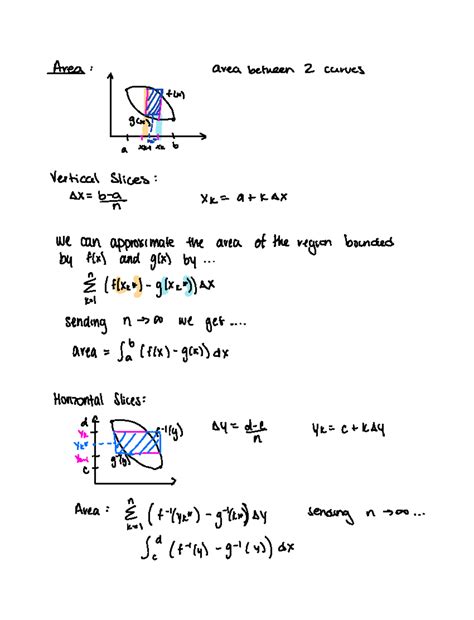 Area :
area between 2 curves
f(x)
g(x)
a xk-1 xk b
Vertical Slices:
Δx = b-a/n
xk = a + kΔx
we can approximate the area of the region bounded
by f(x) and g(x) by ...
n
Σ (f(xk*) - g(xk*)) Δx
k=1
sending n → ∞ we get ....
area = ∫ₐᵇ (f(x) - g(x)) dx
Horizontal Slices:
d
yk
yk*
yk-1
c
f⁻¹(y)
g⁻¹(y)
Δy = d-c/n
yk = c + kΔy
n
Area : Σ (f⁻¹(yk*) - g⁻¹(yk*)) Δy
k=1
sending n → ∞ ...
∫ᶜᵈ (f⁻¹(y) - g⁻¹(y)) dx